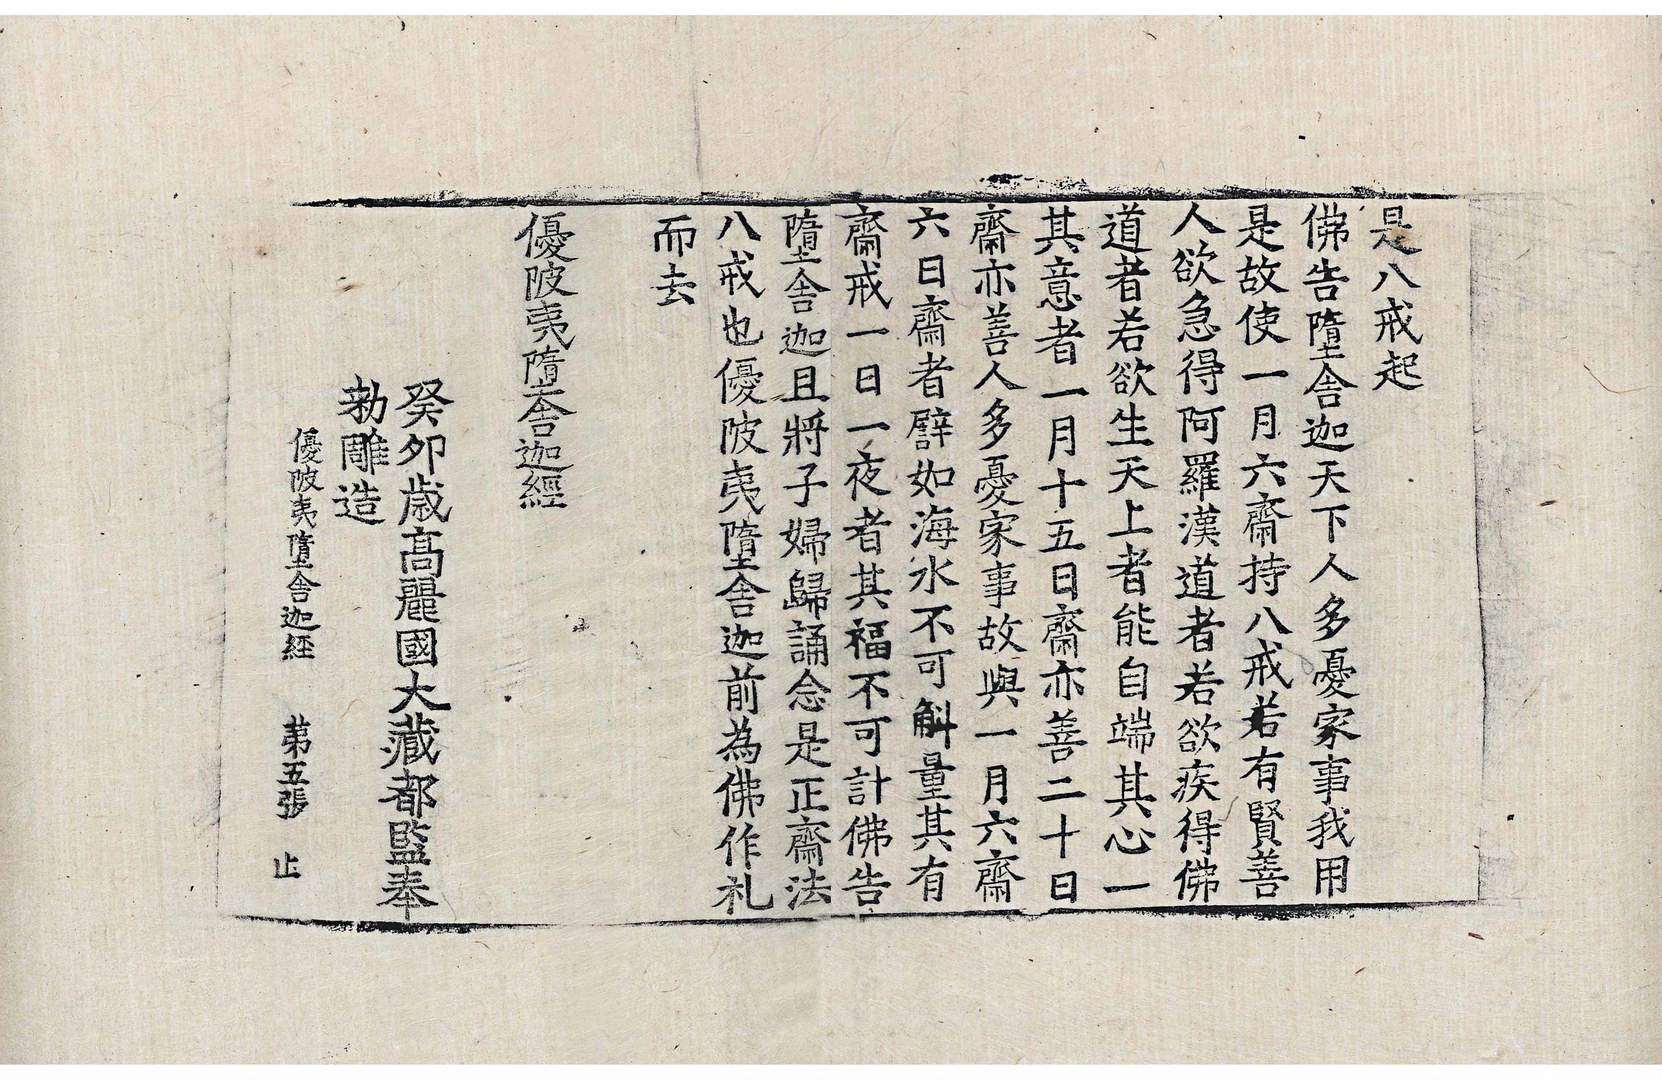 是八戒起
佛告墮舎迦天下人多憂家事我用
是故使一月六齋持八戒若有賢善
人欲急得阿羅漢道者若欲疾得佛
道者若欲生天上者能自端其心一
其意者一月十五日齋亦善二十日
齋亦善人多憂家事故與一月六齋
六日齋者譬如海水不可斛量其有
齋戒一日一夜者其福不可計佛告
墮舎迦且將子婦歸誦念是正齋法
八戒也優陂夷墮舎迦前為佛作礼
而去
優陂夷墮舎迦經
癸卯歳高麗國大藏都監奉
勅雕造
優陂夷墮舎迦経 苐五張 止